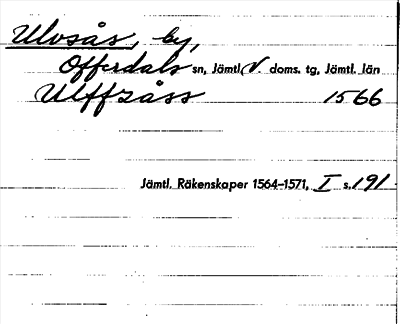 Ulvsås, by,
Offerdals sn, Jämtl. V. doms. tg, Jämtl. län
Ulffzåss 1566
Jämtl. Räkenskaper 1564-1571, I s. 191